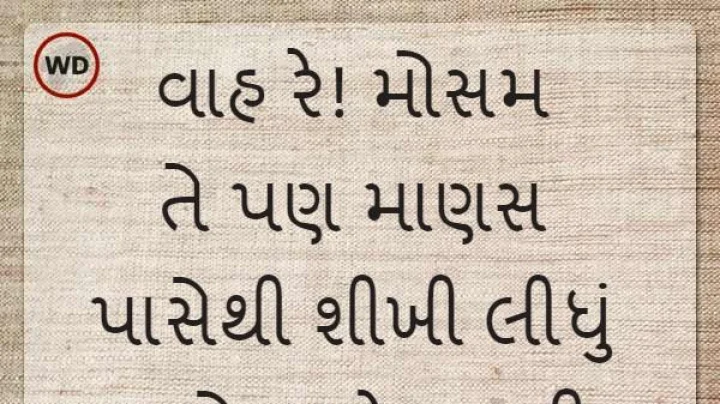 WD
વાહ રે! મોસમ
તે પણ માણસ
પાસેથી શીખી લીધું